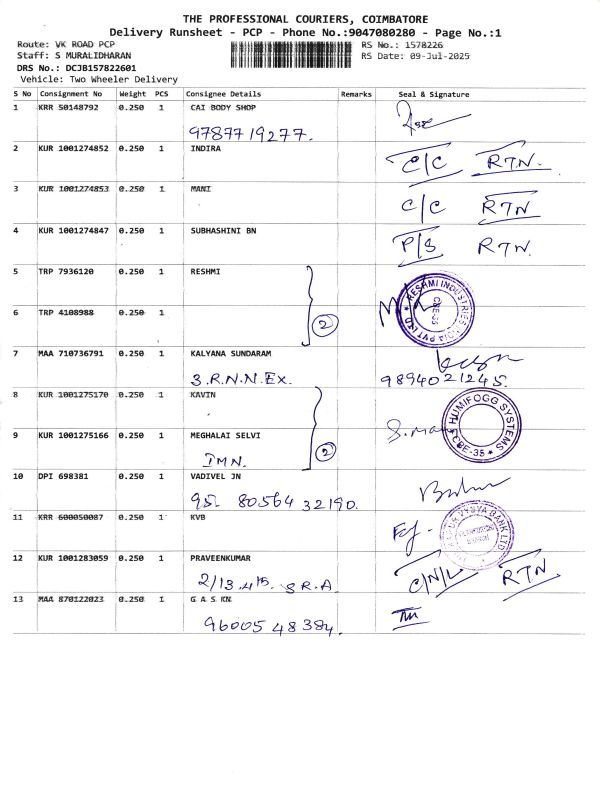 THE PROFESSIONAL COURIERS, COIMBATORE
Delivery Runsheet - PCP - Phone No.:9047080280 - Page No.:1
Route: VK ROAD PCP
RS No.: 1578226
Staff: S MURALIDHARAN
RS Date: 09-Jul-2025
DRS No.: DCJB157822601
Vehicle: Two Wheeler Delivery
S No Consignment No Weight PCS Consignee Details Remarks Seal & Signature
1 KRR 50148792 0.250 1 CAI BODY SHOP
9787719277.
2 KUR 1001274852 0.250 1 INDIRA
C/C RTN.
3 KUR 1001274853 0.250 1 MANI
C/C RTN
4 KUR 1001274847 0.250 1 SUBHASHINI BN
P/S RTN.
5 TRP 7936120 0.250 1 RESHMI
RESHMI INDUSTRIES INDIA PVT LTD
CBE-35
6 TRP 4108988 0.250 1
2
7 MAA 710736791 0.250 1 KALYANA SUNDARAM
3.R.N.N.EX. 9894021245.
8 KUR 1001275170 0.250 1 KAVIN
HUMIFOGG SYSTEMS
CBE-35
9 KUR 1001275166 0.250 1 MEGHALAI SELVI
IMN. 2
10 DPI 698381 0.250 1 VADIVEL JN
95. 8056432190.
11 KRR 600050087 0.250 1 KVB
VYSYA BANK LTD
12 KUR 1001283059 0.250 1 PRAVEENKUMAR
2/13.4th. S.R.A. C/N/L RTN
13 MAA 870122023 0.250 1 G A S KN
9600548384.